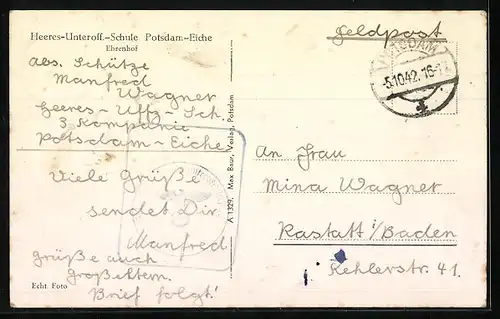 Heeres-Unteroff.-Schule Potsdam-Eiche
Ehrenhof
Abs. Schütze
Manfred
Wagner
Heeres-Uffz-Sch.
3. Kompanie
Potsdam-Eiche
Viele Grüße
sendet Dir
Manfred
grüße auch
Großeltern.
Brief folgt!
Echt Foto
A 1329 Max Baur, Verlag, Potsdam
Feldpost
POTSDAM
5.10.42.16-
An Frau
Mina Wagner
Rastatt i/Baden
Kehlerstr 41.